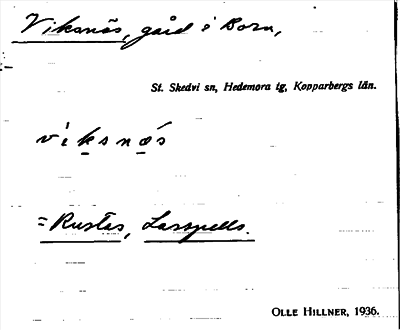 Viksnäs, gård i Born,
St. Skedvi sn, Hedemora tg, Kopparbergs län.
víksnás
= Rustas, Larspells.
OLLE HILLNER, 1936.